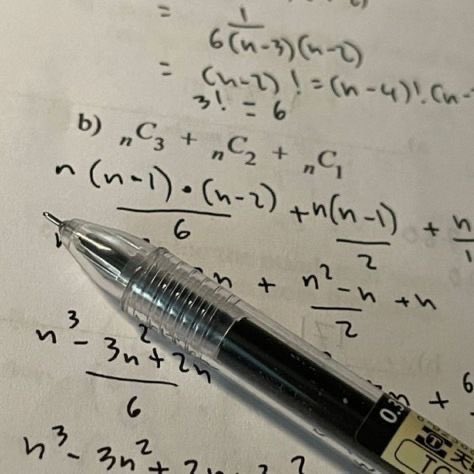 = 1/6(n-3)(n-2)
= (n-2)! = (n-4)! (n-
3! = 6
b) ₙC₃ + ₙC₂ + ₙC₁
n(n-1)·(n-2)/6 + n(n-1)/2 + n/1
n + n²-n/2 + n
n³ - 3n² + 2n/6 + 6
0.3
n³ - 3n² +